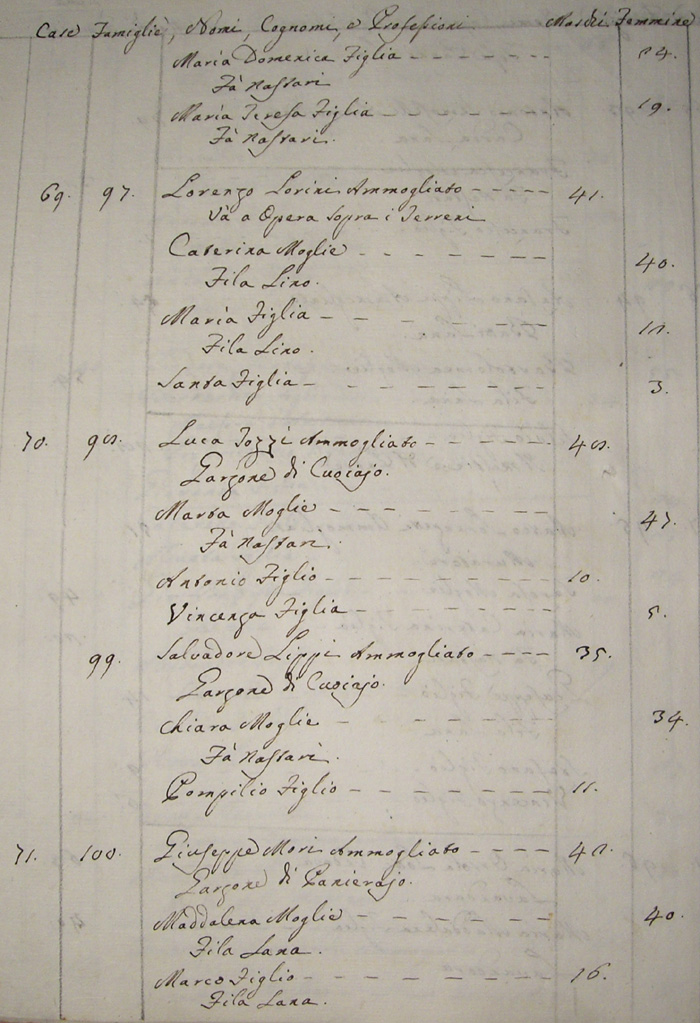 Case Famiglie, Nomi, Cognomi, e Professioni Maschi Femmine
Maria Domenica Figlia 24.
Fà Nastari
Maria Teresa Figlia 19.
Fà Nastari.
69. 97. Lorenzo Lorini Ammogliato 41.
Và a Opera Sopra i Terreni
Caterina Moglie 40.
Fila Lino.
Maria Figlia
Fila Lino.
Santa Figlia 3.
70. 98. Luca Tozzi Ammogliato 48.
Garzone di Cuojajo.
Marta Moglie 47.
Fà Nastari.
Antonio Figlio 10.
Vincenza Figlia 5.
99. Salvadore Lippi Ammogliato 35.
Garzone di Cuojajo.
Chiara Moglie 34.
Fà Nastari.
Pompilio Figlio 11.
71. 100. Giuseppe Mori Ammogliato
Garzone di Panierajo.
Maddalena Moglie 40.
Fila Lana.
Marco Figlio 16.
Fila Lana.